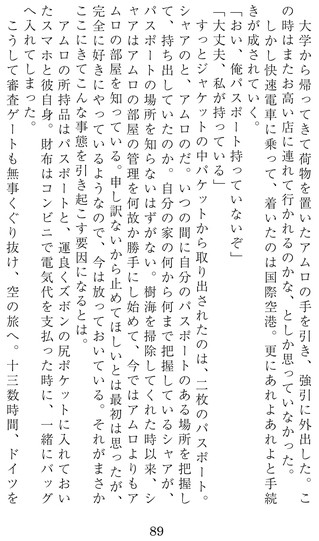 大学から帰ってきて荷物を置いたアムロの手を引き、強引に外出した。こ
の時はまたお高い店に連れて行かれるのかな、としか思っていなかった。
　しかし快速電車に乗って、着いたのは国際空港。更にあれよあれよと手続
きが成されていく。
「おい、俺パスポート持っていないぞ」
「大丈夫、私が持っている」
　すっとジャケットの中パケットから取り出されたのは、二枚のパスポート。
シャアのと、アムロのだ。いつの間に自分のパスポートのある場所を把握し
て、持ち出していたのか。自分の家の何から何まで把握しているシャアが、
パスポートの場所を知らないはずがない。樹海を掃除してくれた時以来、シ
ャアはアムロの部屋の管理を何故か勝手にし始めて、今ではアムロよりもア
ムロの部屋を知っている。申し訳ないから止めてほしいとは最初は思ったが、
完全に好きにやっているようなので、今は放っておいている。それがまさか
ここにきてこんな事態を引き起こす要因になるとは。
　アムロの所持品はパスポートと、運良くズボンの尻ポケットに入れておい
たスマホと彼自身。財布はコンビニで電気代を支払った時に、一緒にバッグ
へ入れてしまった。
　こうして審査ゲートも無事くぐり抜け、空の旅へ。十三数時間、ドイツを
89